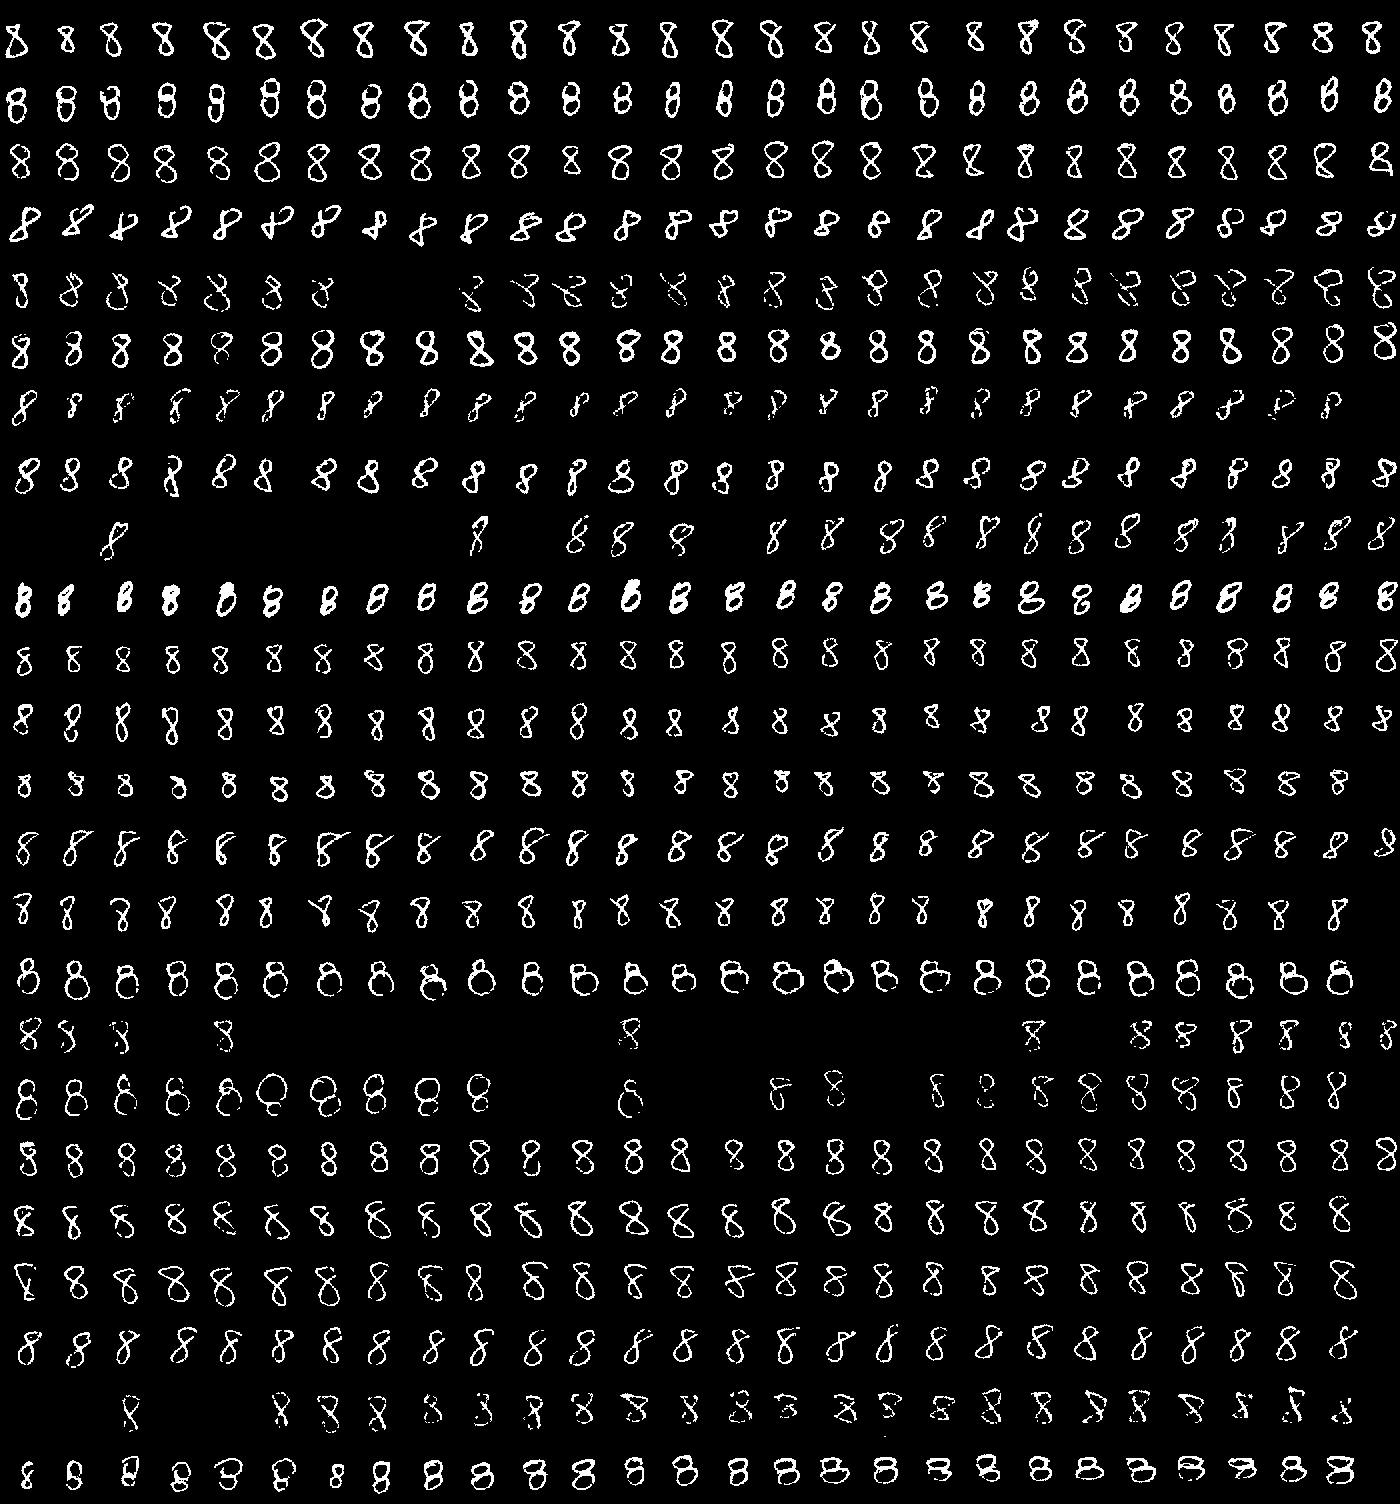 8 8 8 8 8 8 8 8 8 8 8 8 8 8 8 8 8 8 8 8 8 8 8 8 8 8 8 8
8 8 8 8 8 8 8 8 8 8 8 8 8 8 8 8 8 8 8 8 8 8 8 8 8 8 8 8
8 8 8 8 8 8 8 8 8 8 8 8 8 8 8 8 8 8 8 8 8 8 8 8 8 8 8 8
8 8 8 8 8 8 8 8 8 8 8 8 8 8 8 8 8 8 8 8 8 8 8 8 8 8 8 8
8 8 8 8 8 8 8 8 8 8 8 8 8 8 8 8 8 8 8 8 8 8 8 8 8 8
8 8 8 8 8 8 8 8 8 8 8 8 8 8 8 8 8 8 8 8 8 8 8 8 8 8 8 8
8 8 8 8 8 8 8 8 8 8 8 8 8 8 8 8 8 8 8 8 8 8 8 8 8 8 8
8 8 8 8 8 8 8 8 8 8 8 8 8 8 8 8 8 8 8 8 8 8 8 8 8 8 8 8
8 8 8 8 8 8 8 8 8 8 8 8 8 8 8 8 8 8
8 8 8 8 8 8 8 8 8 8 8 8 8 8 8 8 8 8 8 8 8 8 8 8 8 8 8 8
8 8 8 8 8 8 8 8 8 8 8 8 8 8 8 8 8 8 8 8 8 8 8 8 8 8 8 8
8 8 8 8 8 8 8 8 8 8 8 8 8 8 8 8 8 8 8 8 8 8 8 8 8 8 8 8
8 8 8 8 8 8 8 8 8 8 8 8 8 8 8 8 8 8 8 8 8 8 8 8 8 8 8
8 8 8 8 8 8 8 8 8 8 8 8 8 8 8 8 8 8 8 8 8 8 8 8 8 8 8 8
8 8 8 8 8 8 8 8 8 8 8 8 8 8 8 8 8 8 8 8 8 8 8 8 8 8 8
8 8 8 8 8 8 8 8 8 8 8 8 8 8 8 8 8 8 8 8 8 8 8 8 8 8 8
8 8 8 8 8 8 8 8 8 8 8 8
8 8 8 8 8 8 8 8 8 8 8 8 8 8 8 8 8 8 8 8 8 8
8 8 8 8 8 8 8 8 8 8 8 8 8 8 8 8 8 8 8 8 8 8 8 8 8 8 8 8
8 8 8 8 8 8 8 8 8 8 8 8 8 8 8 8 8 8 8 8 8 8 8 8 8 8 8
8 8 8 8 8 8 8 8 8 8 8 8 8 8 8 8 8 8 8 8 8 8 8 8 8 8 8
8 8 8 8 8 8 8 8 8 8 8 8 8 8 8 8 8 8 8 8 8 8 8 8 8 8 8
8 8 8 8 8 8 8 8 8 8 8 8 8 8 8 8 8 8 8 8 8 8 8
8 8 8 8 8 8 8 8 8 8 8 8 8 8 8 8 8 8 8 8 8 8 8 8 8 8 8